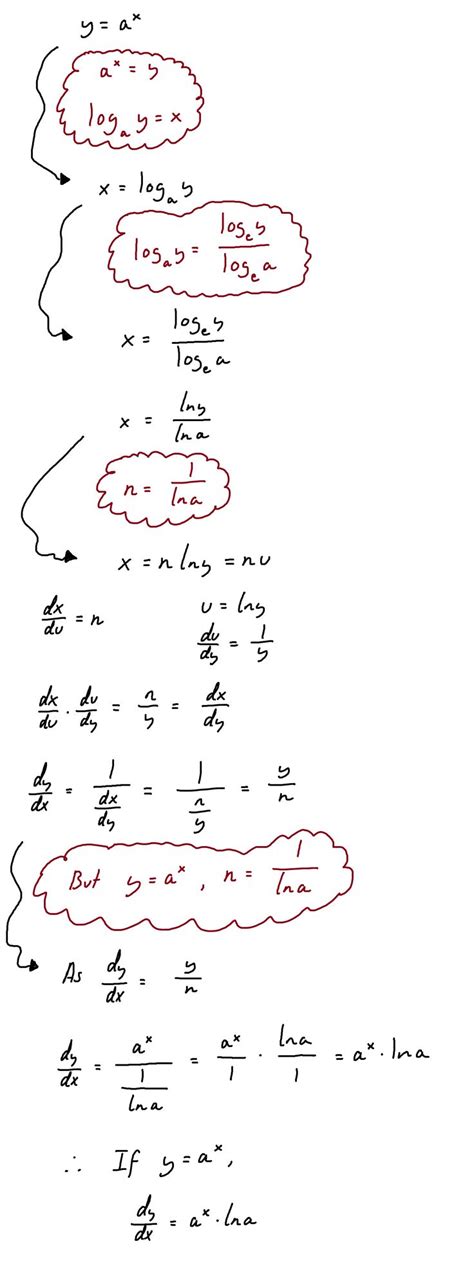 y = a^x
a^x = y
log_a y = x
x = log_a y
log_a y = log_e y / log_e a
x = log_e y / log_e a
x = ln y / ln a
n = 1 / ln a
x = n ln y = n u
dx/du = n u = ln y
du/dy = 1/y
dx/du · du/dy = n/y = dx/dy
dy/dx = 1/(dx/dy) = 1/(n/y) = y/n
But y = a^x , n = 1/ln a
As dy/dx = y/n
dy/dx = a^x/(1/ln a) = a^x/1 · ln a/1 = a^x · ln a
∴ If y = a^x,
dy/dx = a^x · ln a